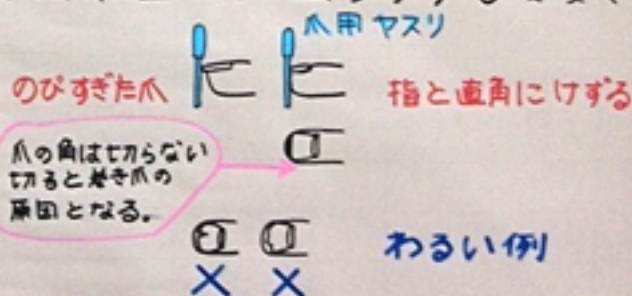 爪用ヤスリ
のびすぎた爪
指と直角にけずる
爪の角は切らない
切ると巻き爪の
原因となる。
わるい例
× ×